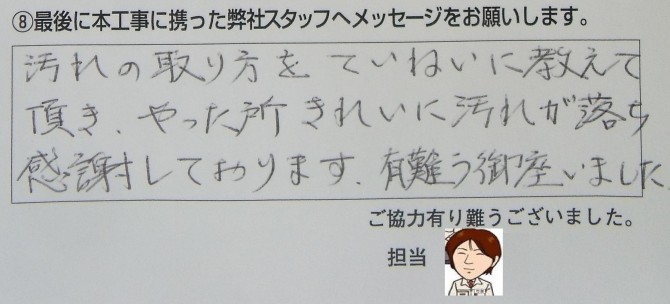 ⑧最後に本工事に携った弊社スタッフへメッセージをお願いします。
汚れの取り方を ていねいに教えて
頂き、やった所 きれいに汚れが落ち
感謝しております。有難う御座いました
ご協力有り難うございました。
担当